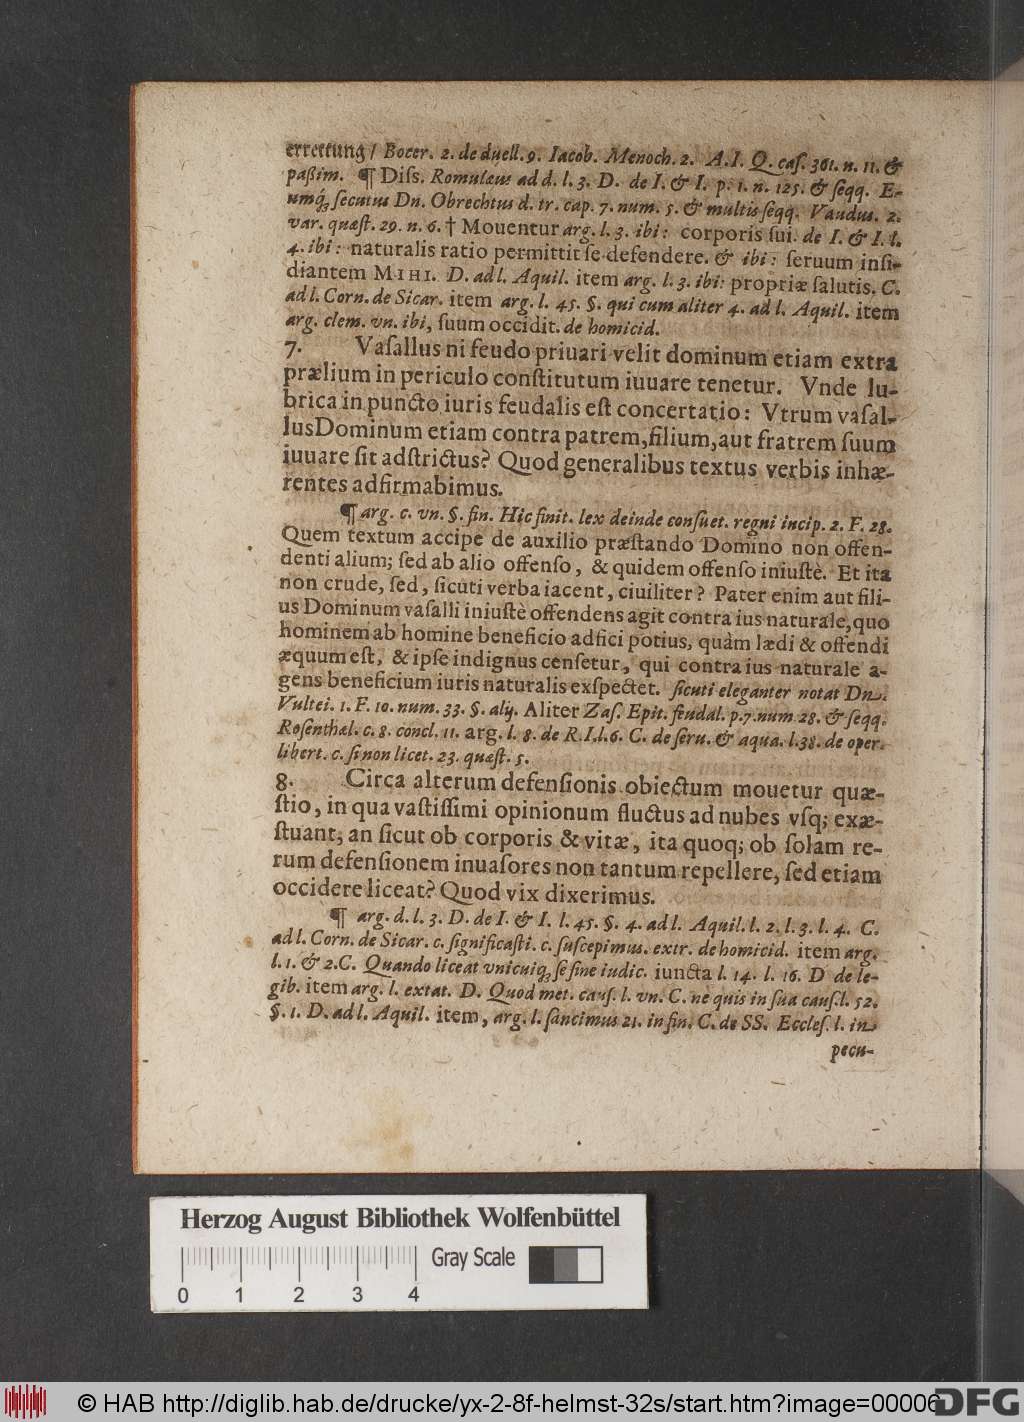 errettung / Bocer. 2. de duell. 9. Iacob. Menoch. 2. A. I. Q. caſ. 361. n. 11. &
paßim. ¶ Diſs. Romulæus ad d. l. 3. D. de I. & I. p. 1. n. 125. & ſeqq. E-
umq́; ſecutus Dn. Obrechtus d. tr. cap. 7. num. 5. & multis ſeqq. Vaudus. 2.
var. quæſt. 29. n. 6. † Mouentur arg. l. 3. ibi: corporis ſui. de I. & I. l.
4. ibi: naturalis ratio permittit ſe defendere. & ibi: ſeruum inſi-
diantem MIHI. D. ad l. Aquil. item arg. l. 3. ibi: propriæ ſalutis. C.
ad l. Corn. de Sicar. item arg. l. 45. §. qui cum aliter 4. ad l. Aquil. item
arg. clem. vn. ibi, ſuum occidit. de homicid.
7. Vaſallus ni feudo priuari velit dominum etiam extra
prælium in periculo conſtitutum iuuare tenetur. Vnde lu-
brica in puncto iuris feudalis eſt concertatio: Vtrum vaſal-
lus Dominum etiam contra patrem, filium, aut fratrem ſuum
iuuare ſit adſtrictus? Quod generalibus textus verbis inhæ-
rentes adfirmabimus.
¶ arg. c. vn. §. fin. Hic finit. lex deinde conſuet. regni incip. 2. F. 28.
Quem textum accipe de auxilio præſtando Domino non offen-
denti alium; ſed ab alio offenſo, & quidem offenſo iniuſtè. Et ita
non crude, ſed, ſicuti verba iacent, ciuiliter? Pater enim aut fili-
us Dominum vaſalli iniuſtè offendens agit contra ius naturale, quo
hominem ab homine beneficio adfici potius, quàm lædi & offendi
æquum eſt, & ipſe indignus cenſetur, qui contra ius naturale a-
gens beneficium iuris naturalis exſpectet. ſicuti eleganter notat Dn.
Vultei. 1. F. 10. num. 33. §. alij. Aliter Zaſ. Epit. feudal. p. 7. num 28. & ſeqq.
Roſenthal. c. 8. concl. 11. arg. l. 8. de R. I. l. 6. C. de ſeru. & aqua. l. 38. de oper.
libert. c. ſi non licet. 23. quæſt. 5.
8. Circa alterum defenſionis obiectum mouetur quæ-
ſtio, in qua vaſtiſſimi opinionum fluctus ad nubes vſq; exæ-
ſtuant, an ſicut ob corporis & vitæ, ita quoq; ob ſolam re-
rum defenſionem inuaſores non tantum repellere, ſed etiam
occidere liceat? Quod vix dixerimus.
¶ arg. d. l. 3. D. de I. & I. l. 45. §. 4. ad l. Aquil. l. 2. l. 3. l. 4. C.
ad l. Corn. de Sicar. c. ſignificaſti. c. ſuſcepimus. extr. de homicid. item arg.
l. 1. & 2. C. Quando liceat vnicuiq; ſe ſine iudic. iuncta l. 14. l. 16. D de le-
gib. item arg. l. extat. D. Quod met. cauſ. l. vn. C. ne quis in ſua cauſ. l. 52.
§. 1. D. ad l. Aquil. item, arg. l. ſancimus 21. in fin. C. de SS. Eccleſ. l. in
pecu-
Herzog August Bibliothek Wolfenbüttel
Gray Scale
0 1 2 3 4
© HAB http://diglib.hab.de/drucke/yx-2-8f-helmst-32s/start.htm?image=00006
DFG